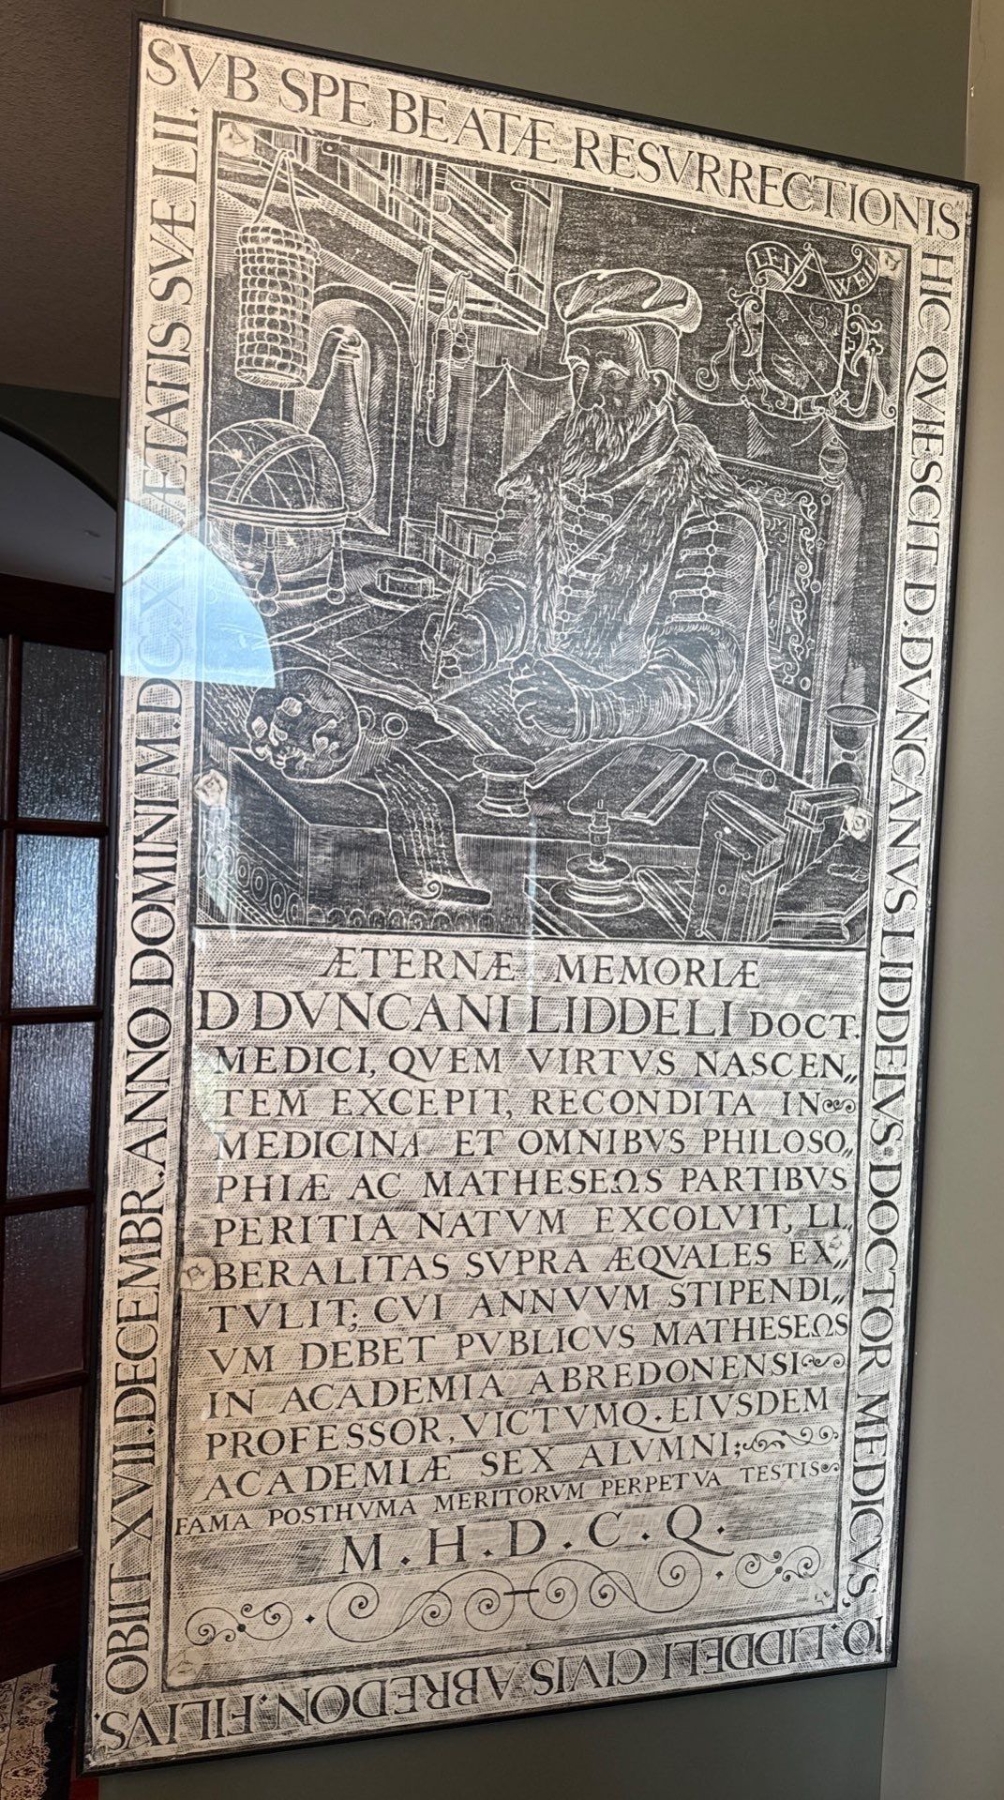 SVB SPE BEATÆ RESVRRECTIONIS
HIC QVIESCIT D. DVNCANVS LIDDELIVS DOCTOR MEDICVS,
IO. LIDDELI CIVIS ABREDON. FILIVS.
OBIIT XVII. DECEMBR. ANNO DOMINI M. DC. X ÆTATIS SVÆ LII.
ÆTERNÆ MEMORIÆ
D DVNCANI LIDDELI DOCT.
MEDICI, QVEM VIRTVS NASCEN„
TEM EXCEPIT, RECONDITA IN
MEDICINA ET OMNIBVS PHILOSO„
PHIÆ AC MATHESEΩS PARTIBVS
PERITIA NATVM EXCOLVIT, LI„
BERALITAS SVPRA ÆQVALES EX„
TVLIT; CVI ANNVVM STIPENDI„
VM DEBET PVBLICVS MATHESEΩS
IN ACADEMIA ABREDONENSI
PROFESSOR, VICTVMQ. EIVSDEM
ACADEMIÆ SEX ALVMNI;
FAMA POSTHVMA MERITORVM PERPETVA TESTIS
M. H. D. C. Q.